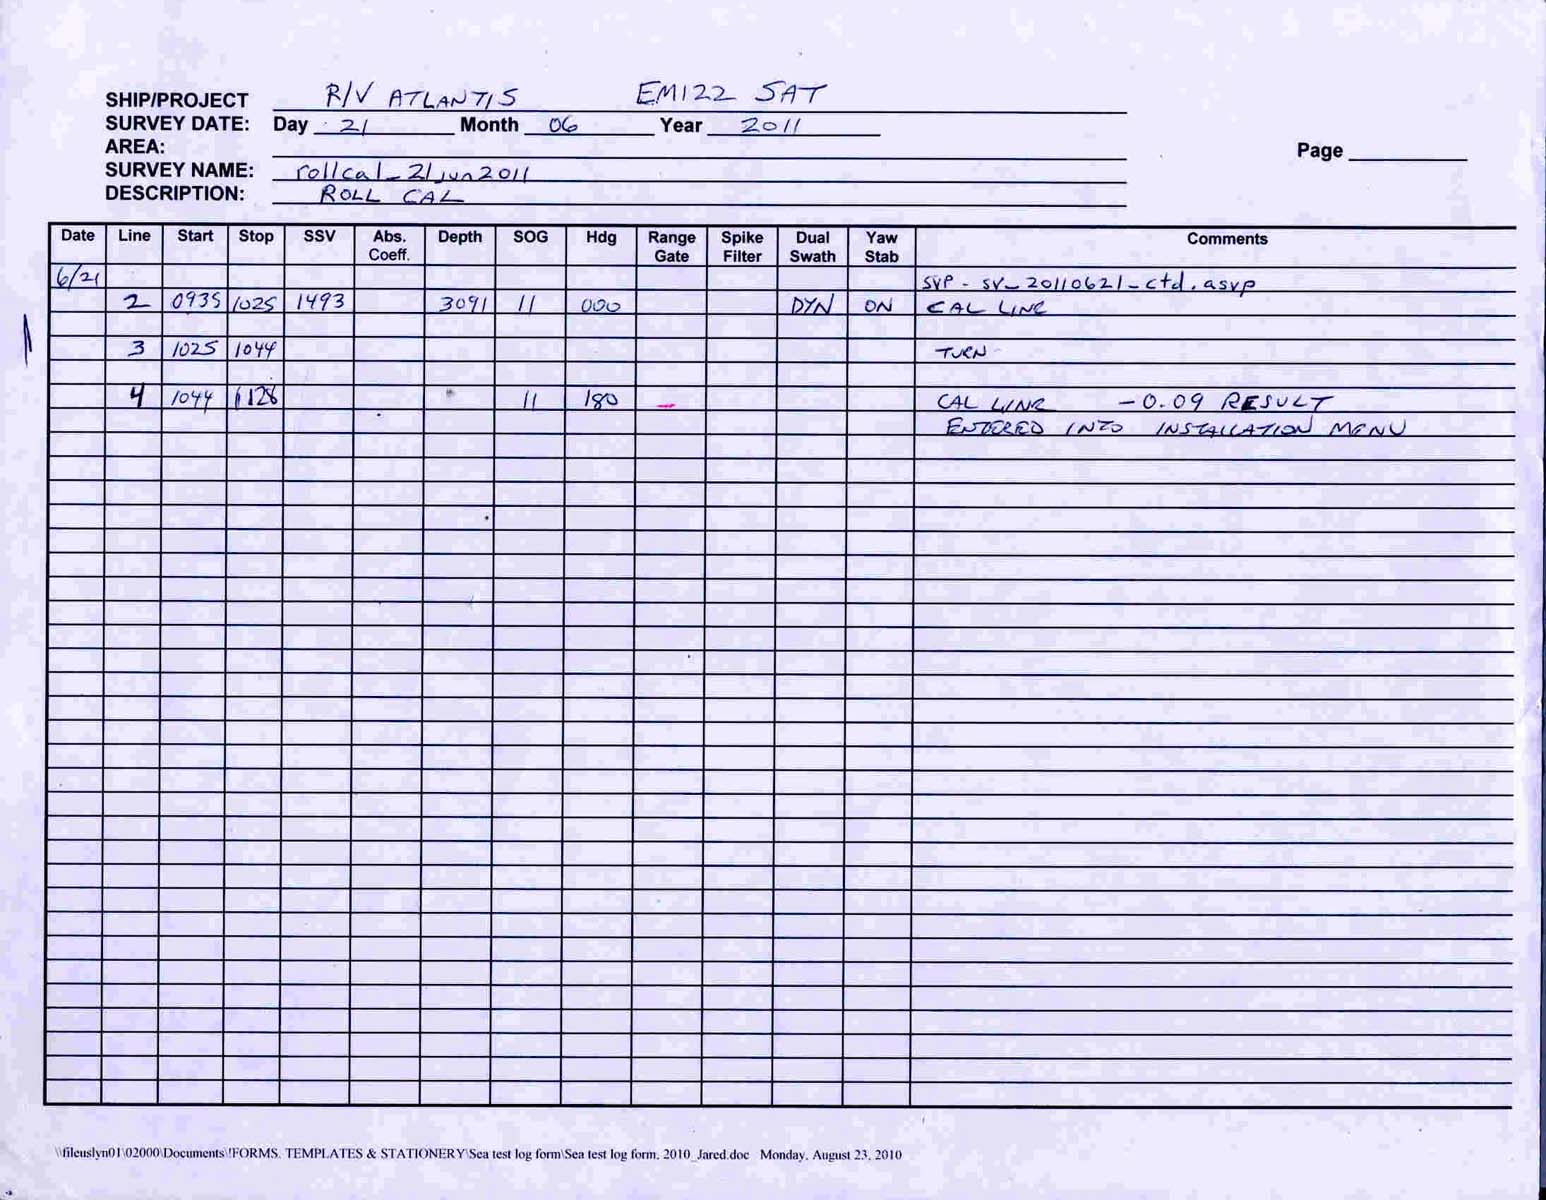 SHIP/PROJECT R/V ATLANTIS EM122 SAT
SURVEY DATE: Day 21 Month 06 Year 2011
AREA:
Page
SURVEY NAME: rollcal_21jun2011
DESCRIPTION: ROLL CAL
Date Line Start Stop SSV Abs. Coeff. Depth SOG Hdg Range Gate Spike Filter Dual Swath Yaw Stab Comments
6/21 SVP - sv_20110621_ctd.asvp
2 0935 1025 1493 3091 11 000 DYN ON CAL LINE
3 1025 1044 TURN
4 1044 1128 11 180 CAL LINE -0.09 RESULT
ENTERED INTO INSTALLATION MENU
\\fileuslyn01\02000\Documents\!FORMS, TEMPLATES & STATIONERY\Sea test log form\Sea test log form, 2010_Jared.doc Monday, August 23, 2010